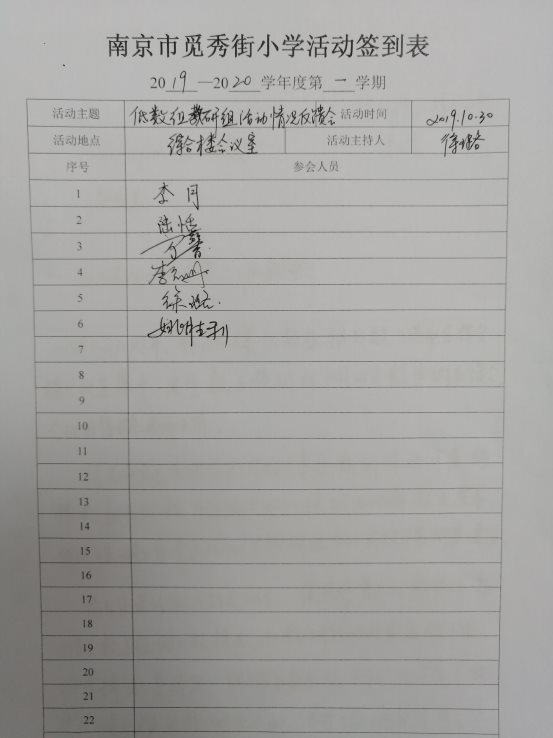 南京市觅秀街小学活动签到表
2019—2020学年度第一学期
活动主题 低数组教研组活动情况反馈会 活动时间 2019.10.30
活动地点 综合楼会议室 活动主持人 徐
序号 参会人员
1 李月
2 陆恬
3
4 李
5 徐
6 姚
7
8
9
10
11
12
13
14
15
16
17
18
19
20
21
22